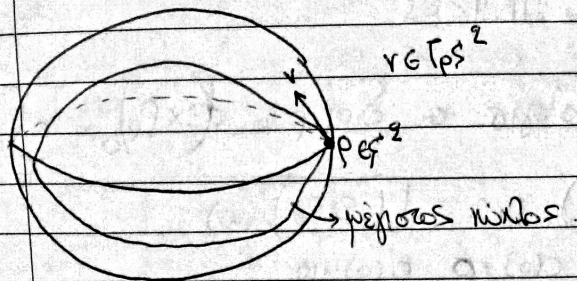 v ∈ TₚS²
v
p ∈ S²
μέγιστος κύκλος